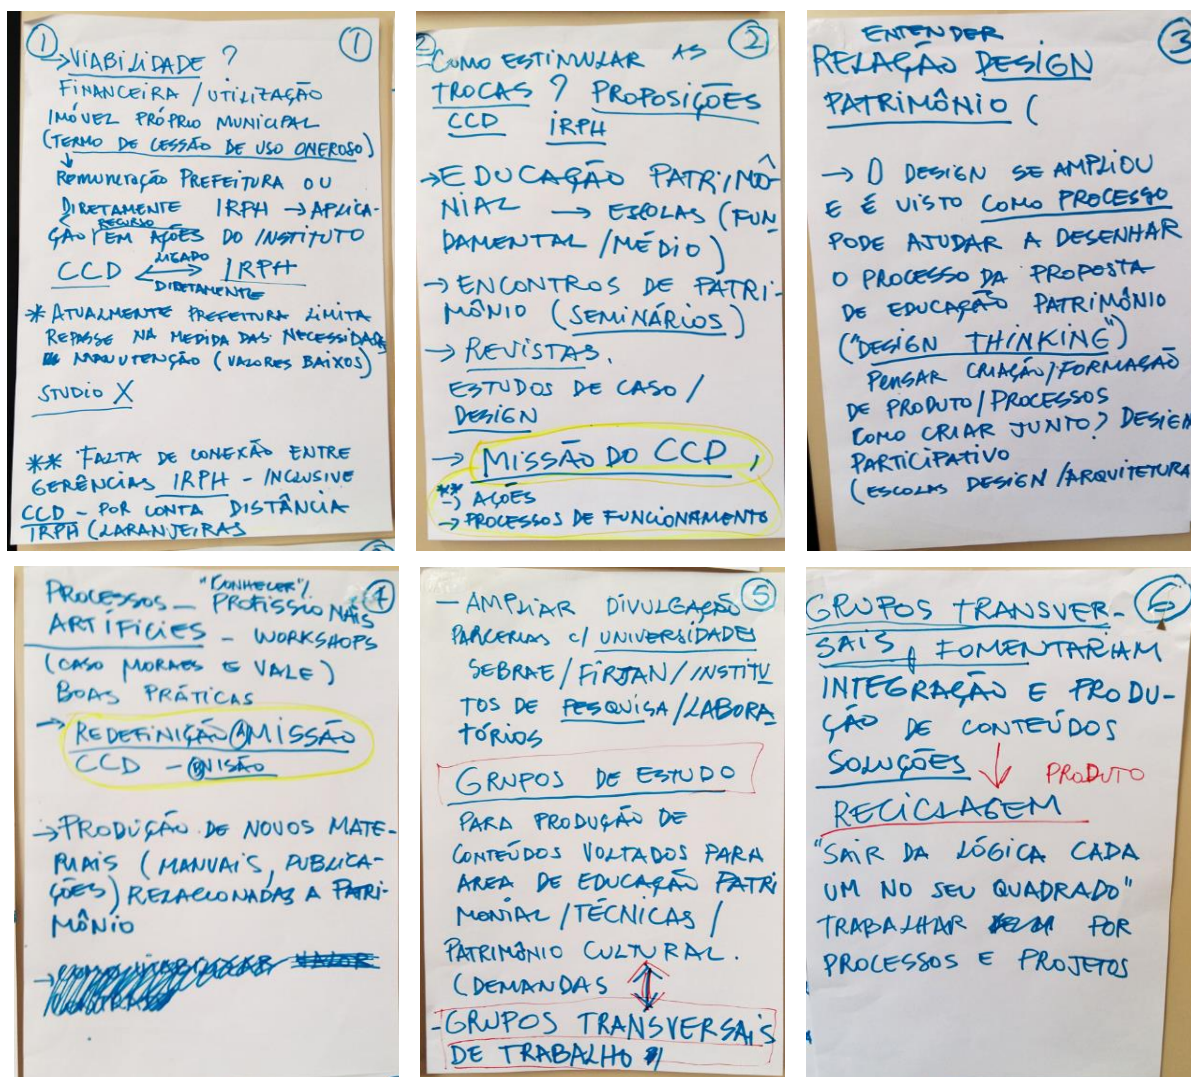 1 1
→ VIABILIDADE ?
FINANCEIRA / UTILIZAÇÃO
IMÓVEL PRÓPRIO MUNICIPAL
(TERMO DE CESSÃO DE USO ONEROSO)
↓
REMUNERAÇÃO PREFEITURA OU
DIRETAMENTE IRPH → APLICA-
RECURSO
ÇÃO EM AÇÕES DO INSTITUTO
LIGADO
CCD ↔ IRPH
DIRETAMENTE
* ATUALMENTE PREFEITURA LIMITA
REPASSE NA MEDIDA DAS NECESSIDADES
MANUTENÇÃO (VALORES BAIXOS)
STUDIO X
** FALTA DE CONEXÃO ENTRE
GERÊNCIAS IRPH - INCLUSIVE
CCD - POR CONTA DISTÂNCIA
IRPH (LARANJEIRAS
2 2
COMO ESTIMULAR AS
TROCAS ? PROPOSIÇÕES
CCD IRPH
→ EDUCAÇÃO PATRIMÔ-
NIAL → ESCOLAS (FUN
DAMENTAL / MÉDIO)
→ ENCONTROS DE PATRI-
MÔNIO (SEMINÁRIOS)
→ REVISTAS.
ESTUDOS DE CASO /
DESIGN
→ MISSÃO DO CCD,
** → AÇÕES
→ PROCESSOS DE FUNCIONAMENTO
3
ENTENDER
RELAÇÃO DESIGN
PATRIMÔNIO (
→ O DESIGN SE AMPLIOU
E É VISTO COMO PROCESSO
PODE AJUDAR A DESENHAR
O PROCESSO DA PROPOSTA
DE EDUCAÇÃO PATRIMÔNIO
("DESIGN THINKING")
PENSAR CRIAÇÃO/FORMAÇÃO
DE PRODUTO/PROCESSOS
COMO CRIAR JUNTO? DESIGN
PARTICIPATIVO
(ESCOLAS DESIGN / ARQUITETURA
4
"CONHECER"/
PROCESSOS - PROFISSIONAIS
ARTÍFICIES - WORKSHOPS
(CASO MORAES E VALE)
BOAS PRÁTICAS
→ REDEFINIÇÃO A MISSÃO
CCD - B VISÃO
→ PRODUÇÃO DE NOVOS MATE-
RIAIS (MANUAIS, PUBLICA-
ÇÕES) RELACIONADAS A PATRI-
MÔNIO
→
5
- AMPLIAR DIVULGAÇÃO
PARCERIAS C/ UNIVERSIDADES
SEBRAE / FIRJAN / INSTITU
TOS DE PESQUISA / LABORA
TÓRIOS
GRUPOS DE ESTUDO
PARA PRODUÇÃO DE
CONTEÚDOS VOLTADOS PARA
AREA DE EDUCAÇÃO PATRI
MONIAL / TÉCNICAS /
PATRIMÔNIO CULTURAL.
(DEMANDAS ↕
- GRUPOS TRANSVERSAIS
DE TRABALHO
6
GRUPOS TRANSVER-
SAIS, FOMENTARIAM
INTEGRAÇÃO E PRODU-
ÇÃO DE CONTEÚDOS
SOLUÇÕES ↓ PRODUTO
RECICLAGEM
"SAIR DA LÓGICA CADA
UM NO SEU QUADRADO"
TRABALHAR POR
PROCESSOS E PROJETOS